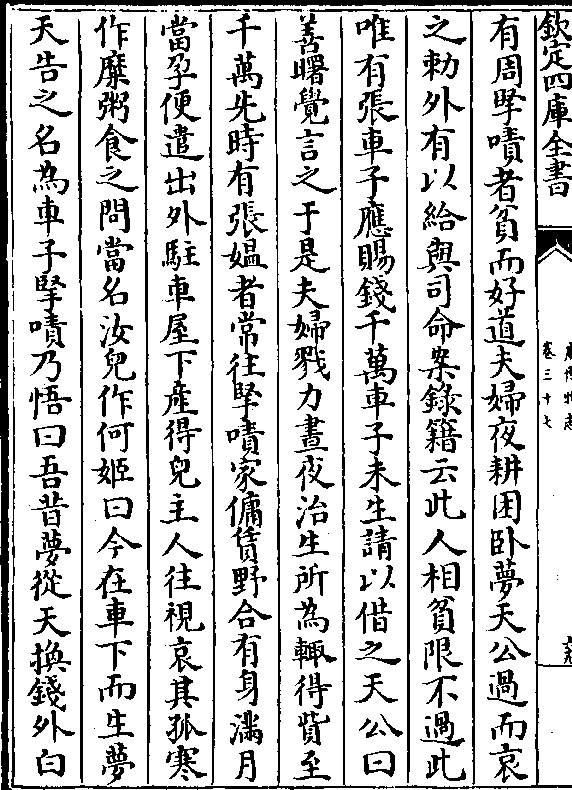 欽定四庫全書
卷三十七
有周犟嘖者貧而好道夫婦夜耕困卧夢天公過而哀
之勑外有以給與司命案錄籍云此人相貧限不過此
唯有張車子應賜錢千萬車子未生請以借之天公曰
善曙覺言之于是夫婦戮力晝夜治生所為輒得貲至
千萬先時有張媪者常往犟嘖家傭賃野合有身滿月
當孕便遣出外駐車屋下產得兒主人往視哀其孤寒
作糜粥食之問當名汝兒作何姬曰今在車下而生夢
天告之名為車子犟嘖乃悟曰吾昔夢從天換錢外白